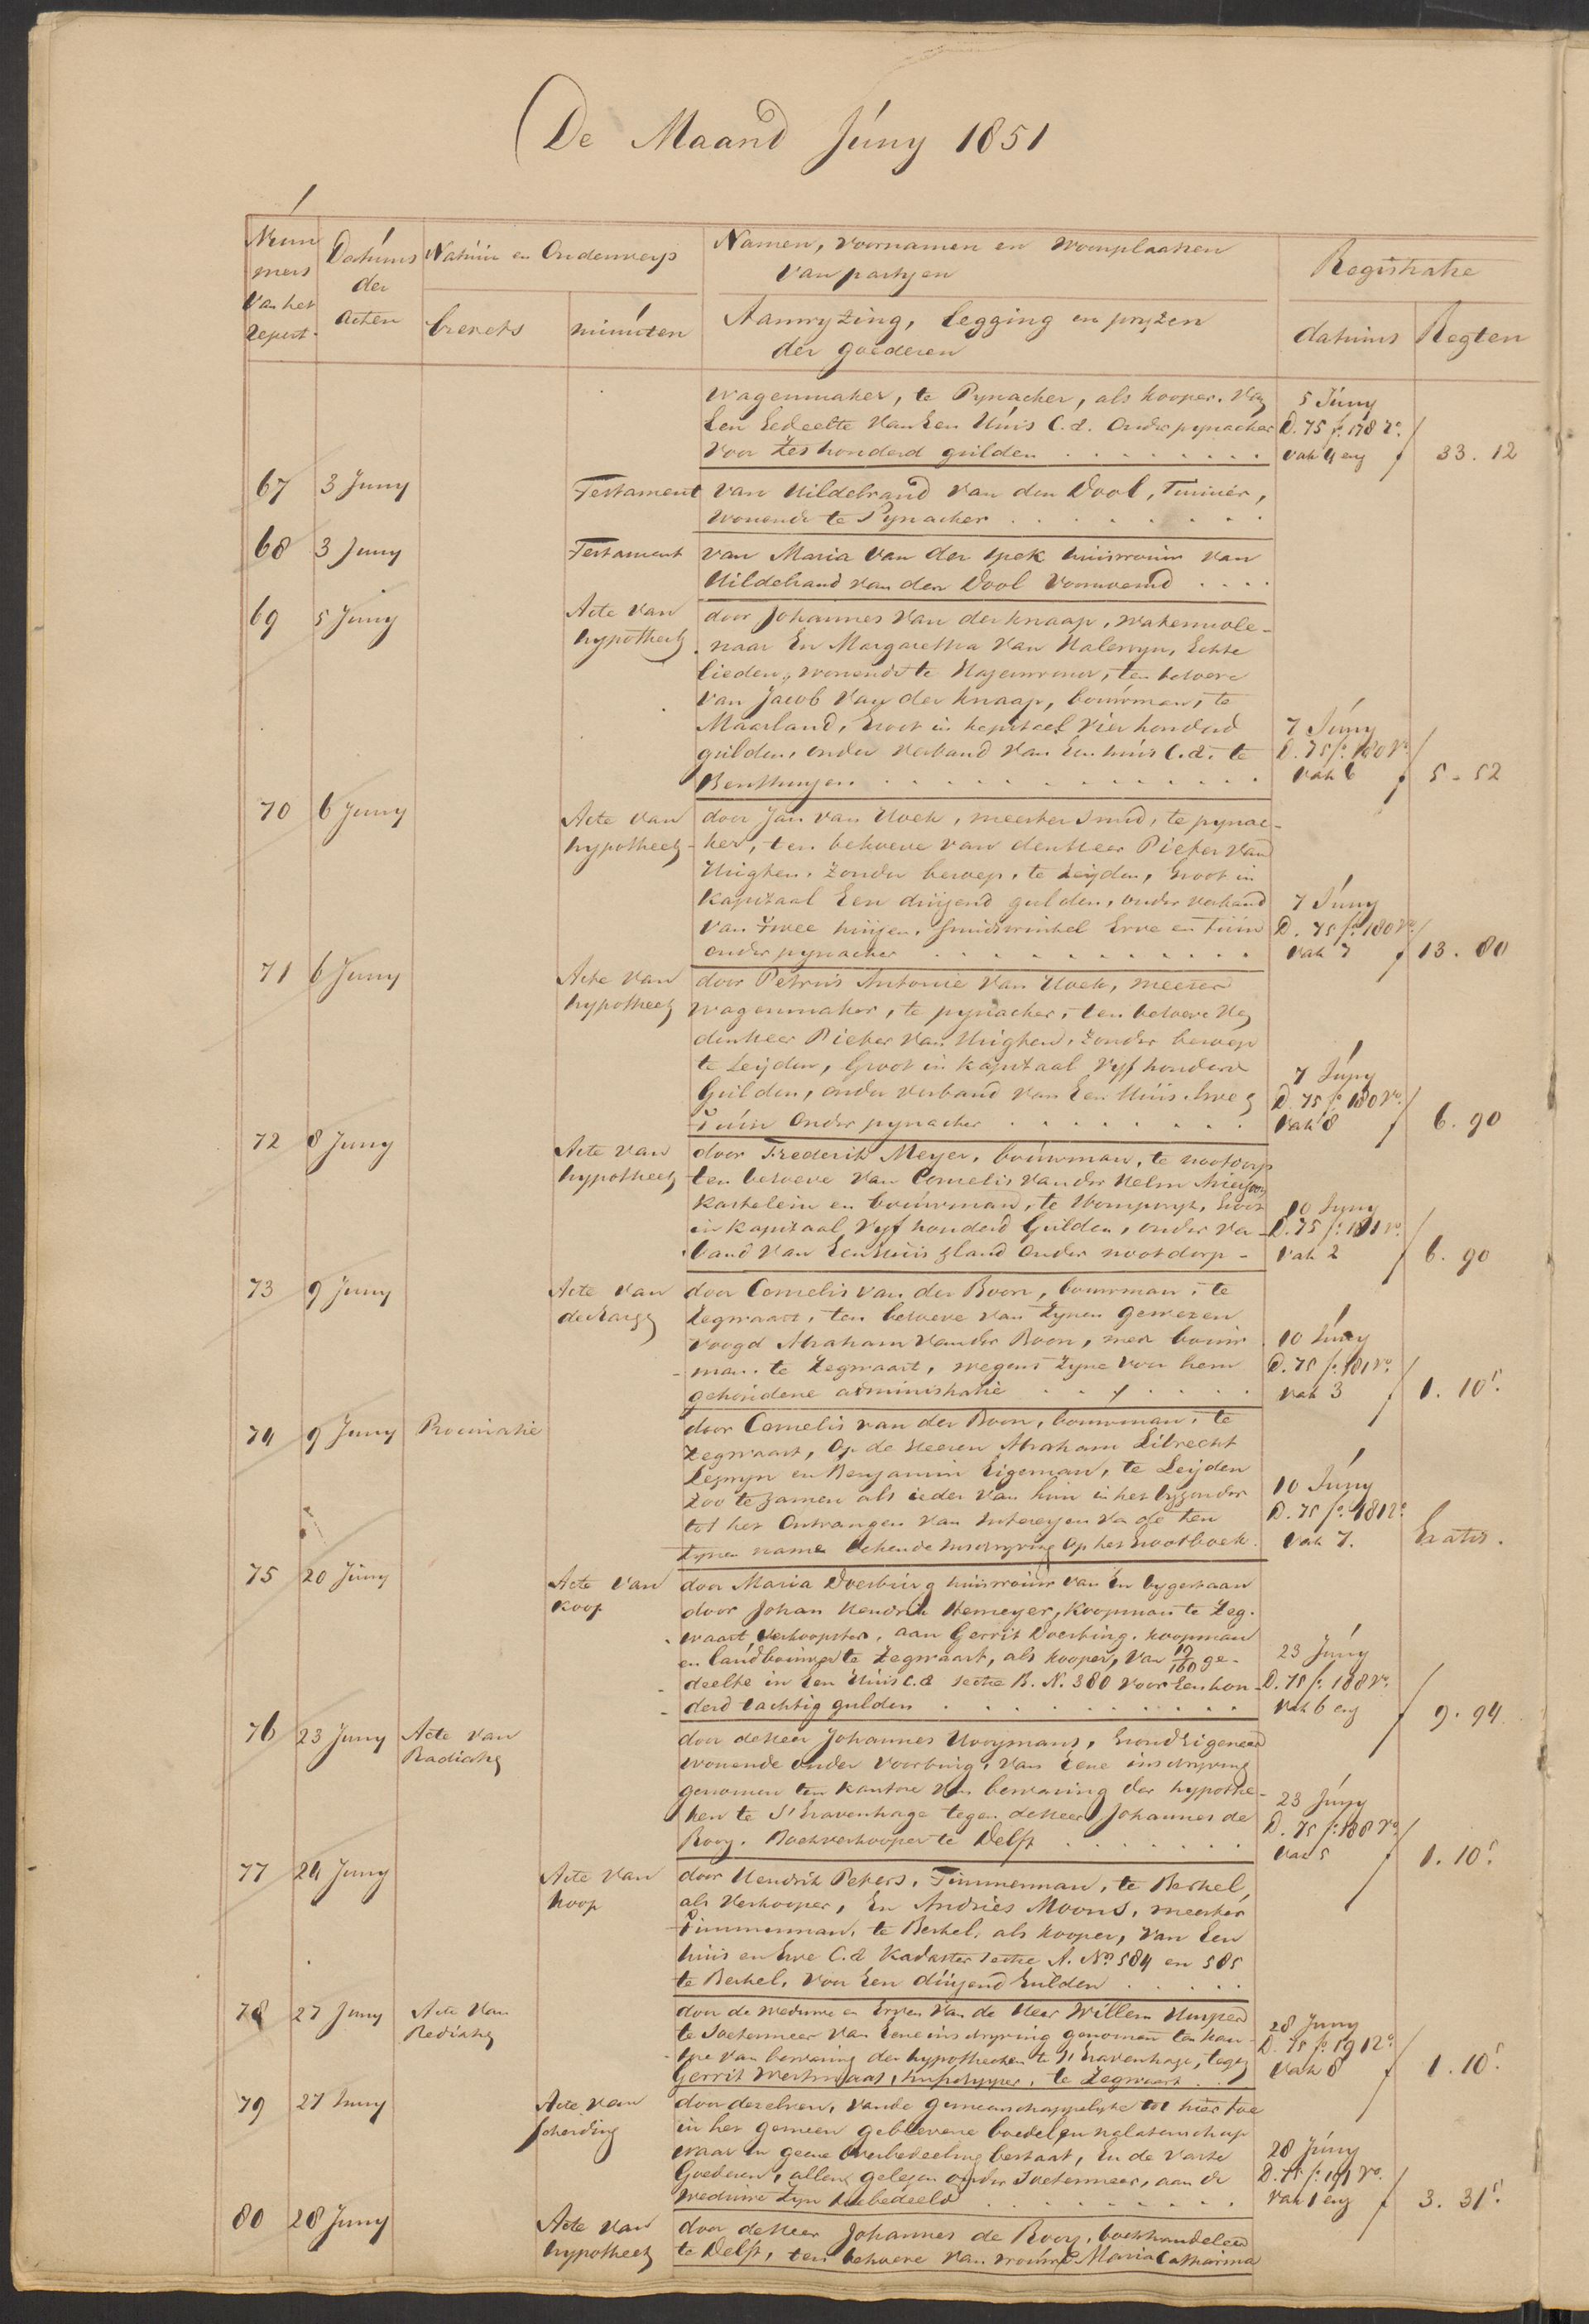 De Maand Juny 1851
Num
mers
van het
Repert.
Datums
der
acten
Natuur en Onderwerp
brevets
minuten
Namen, voornamen en woonplaatsen
van partyen
Aanwyzing, legging en pryzen
der goederen
Registratie
datums
Regten
wagenmaker, te Pynacker, als kooper. van
Een Gedeelte van Een Huis C.a. Onder pynacker
voor Zes honderd gulden
5 Juny
D. 75 fo. 178 ro.
vak 4 env
f 33.12
67
3 Juny
Testament
van Hildebrand van den Dool, Tuinier,
wonende te Pynacker
68
3 Juny
Testament
van Maria van der Spek huisvrouw van
Hildebrand van den Dool voornoemd
69
5 Juny
Acte van
hypotheek
door Johannes van der knaap, watermole-
naar En Margaretha van Halewyn, Echte
lieden, wonende te Hazerswoude, ten behoeve
van Jacob van der knaap, bouwman, te
Maasland, Groot in kapitaal Vier honderd
gulden, onder verband van Een huis C.a. te
Benthuizen
7 Juny
D. 75 fo. 180 vo.
vak 6
f 5.52
70
6 Juny
Acte van
hypotheek
door Jan van Hoek, meester Smid, te pynac-
ker, ten behoeve van den Heer Pieter van
Huigken, zonder beroep, te Leijden, Groot in
kapitaal Een duizend gulden, onder verband
van twee huizen, smidswinkel Erve en Tuin
onder pynacker
7 Juny
D. 75 fo. 180 vo.
vak 7
f 13.80
71
6 Juny
Acte van
hypotheek
door Petrus Antonie van Hoek, meester
wagenmaker, te pynacker, ten behoeve van
den Heer Pieter van Huigken, zonder beroep
te Leijden, Groot in kapitaal Vyf honderd
Gulden, onder verband van Een Huis Erve en
Tuin Onder pynacker
7 Juny
D. 75 fo. 180 vo.
vak 8
f 6.90
72
8 Juny
Acte van
hypotheek
door Frederik Meyer, bouwman, te nootdorp
ten behoeve van Cornelis van der Helm Ariejzoon
kastelein en bouwman, te Groot
in kapitaal Vyf honderd Gulden, onder ver-
band van Een huis & land Onder nootdorp
10 Juny
D. 75 fo. 181 ro.
vak 2
f 6.90
73
9 Juny
Acte van
decharge
door Cornelis van der Boon, bouwman, te
Zegwaart, ten behoeve van zynen gewezen
voogd Abraham van der Boon, mede bouw-
man te Zegwaart, wegens zyne voor hem
gehoudene administratie
10 Juny
D. 75 fo. 181 ro.
vak 3
f 1.10⁵
74
9 Juny
Procuratie
door Cornelis van der Boon, bouwman, te
Zegwaart, Op de Heeren Abraham Librecht
Lezwyn en Benjamin Eigeman, te Leijden
zoo te zamen als ieder van hun in het byzonder
tot het Ontvangen van Interessen van de ten
zynen name bekende Inschryving op het Grootboek
10 Juny
D. 75 fo. 181 ro.
vak 7.
Gratis.
75
20 Juny
Acte van
koop
door Maria Doesburg huisvrouw van en bygestaan
door Johan Hendrik Hemeyer, koopman te Zeg-
waart, verkoopster, aan Gerrit Doesburg, koopman
en landbouwer te Zegwaart, als kooper, van 19/160 ge-
deelte in Een Huis C.a. sectie B. N. 380 voor Een hon-
derd tachtig gulden
23 Juny
D. 75 fo. 188 ro.
vak 6 env
f 9.94
76
23 Juny
Acte van
Radiatie
door de Heer Johannes Hooymans, GrondEigenaar
wonende onder Voorburg, van Eene inschryving
genomen ten kantore van bewaring der hypothe-
ken te S'Gravenhage tegen de Heer Johannes de
Rooy, Boekverkooper te Delft
23 Juny
D. 75 fo. 188 ro.
vak 5
f 1.10⁵
77
24 Juny
Acte van
koop
door Hendrik Peters, Timmerman, te Berkel,
als verkooper, En Andries Moons, meester
Timmerman, te Berkel, als kooper, van Een
huis en Erve C.a. kadaster sectie A. No. 584 en 585
te Berkel, voor Een duizend Gulden
78
27 Juny
Acte van
Radiatie
door de weduwe en Erven van de Heer Willem
te Soetermeer van Eene inschryving genomen ten kan-
tore van bewaring der hypotheeken te S'Gravenhage, tegen
Gerrit te Zegwaart
28 Juny
D. 75 fo. 191 ro.
vak 8
f 1.10⁵
79
27 Juny
Acte van
scheiding
door dezelven, van de gemeenschappelyke tot hier toe
in het gemeen geblevene boedel en nalatenschap
waar in geene Overbedeeling bestaat, En de vaste
Goederen, allen gelegen onder Soetermeer, aan de
weduwe zyn toebedeeld
28 Juny
D. 75 fo. 191 vo.
vak 1 env
f 3.31⁵
80
28 Juny
Acte van
hypotheek
door de Heer Johannes de Rooy, boekhandelaar
te Delft, ten behoeve van vrouwe Maria Catharina